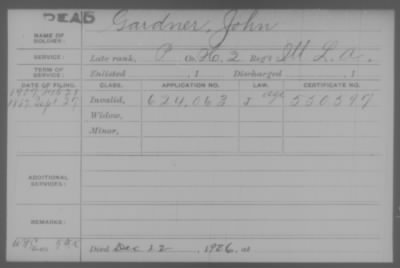 DEAD
Gardner, John
NAME OF SOLDIER:
SERVICE: Late rank, P Co. No. 2 Reg't Ill L.A.
TERM OF SERVICE: Enlisted , 1 Discharged , 1
DATE OF FILING. CLASS. APPLICATION NO. LAW. CERTIFICATE NO.
1907
1887 Sept 27 Invalid, 624,063 J age 550597
Widow,
Minor,
ADDITIONAL SERVICES:
REMARKS:
Died Dec 22, 1926, at